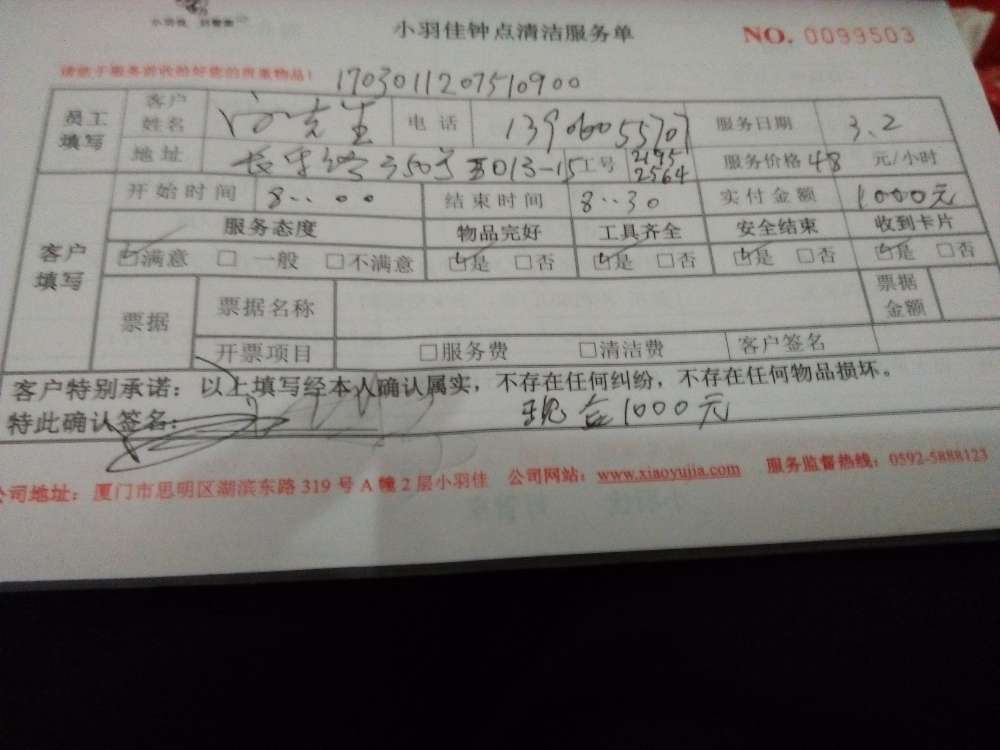 小羽佳钟点清洁服务单
NO. 0099503
请您于服务前收拾好您的贵重物品!
1703011207510900
员工填写 客户姓名 先生 电话 服务日期 3.2
地址 长乐路350号 013-15 工号 2195 2564 服务价格48 元/小时
客户填写 开始时间 8:00 结束时间 8:30 实付金额 1000元
服务态度 物品完好 工具齐全 安全结束 收到卡片
☑满意 □ 一般 □不满意 ☑是 □否 ☑是 □否 ☑是 □否 ☑是 □否
票据 票据名称 票据金额
开票项目 □服务费 □清洁费 客户签名
客户特别承诺：以上填写经本人确认属实，不存在任何纠纷，不存在任何物品损坏。
特此确认签名：
现金1000元
公司地址：厦门市思明区湖滨东路 319 号 A 幢 2 层小羽佳 公司网站：www.xiaoyujia.com 服务监督热线：0592-5888123